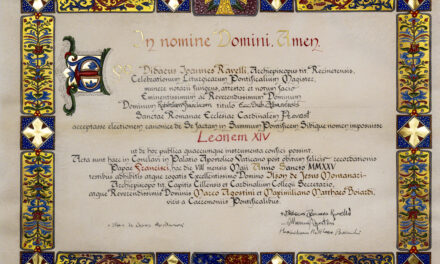 In nomine Domini. Amen
Ego Didacus Ioannes Ravelli, Archiepiscopus tit. Recinetensis,
Celebrationum Liturgicarum Pontificalium Magister,
munere notarii fungens, attestor et notum facio
Eminentissimum ac Reverendissimum Dominum
Dominum titulo
Sanctae Romanae Ecclesiae Cardinalem Prevost
acceptasse electionem canonice de Se factam in Summum Pontificem Sibique nomen imposuisse
Leonem XIV
ut de hac publica quaecumque instrumenta confici possint.
Acta sunt haec in Conclavi in Palatio Apostolico Vaticano post obitum felicis recordationis
Papae Francisci, hac die VIII mensis Maii Anno Sancto MMXXV
testibus adhibitis atque rogatis Excellentissimo Domino Ilson de Jesus Montanari
Archiepiscopo tit. Capitis Cillensis et Cardinalium Collegii Secretario,
atque Reverendissimis Dominis Marco Agostini et Maximiliano Matthaeo Boiardi,
vitiis a Caeremoniis Pontificalibus.